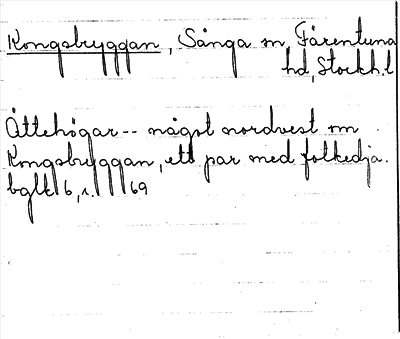 Kongsbryggan, Sånga sn, Färentuna
hd, Stockh. l
Ättehögar -- något nordvest om
Kongsbryggan, ett par med folkedja.
bglt 6, s. 69